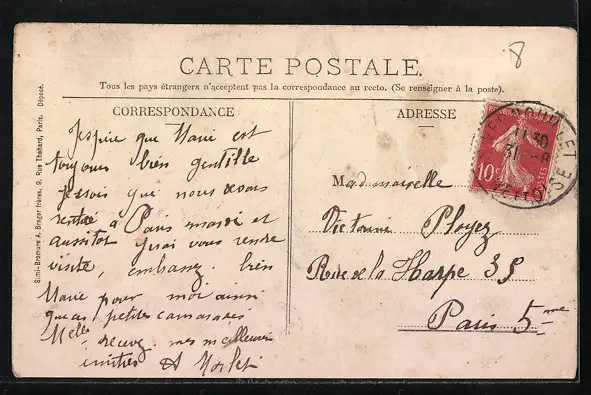 8
CARTE POSTALE.
Tous les pays étrangers n'acceptent pas la correspondance au recto. (Se renseigner à la poste).
CORRESPONDANCE
J'espère que Marie est
toujours bien gentille
que nous devons
rentré à Paris mardi et
aussitot j'irai vous rendre
visite, embrassez bien
Marie pour moi ainsi
que petites camarades
Melles recevez mes meilleures
amitiés A
ADRESSE
Mademoiselle
Victorine Ployez
Rue de la Harpe 35
Paris 5me
10c
Simi-Bromure A. Breger frères, 9, Rue Thénard, Paris. Déposé.